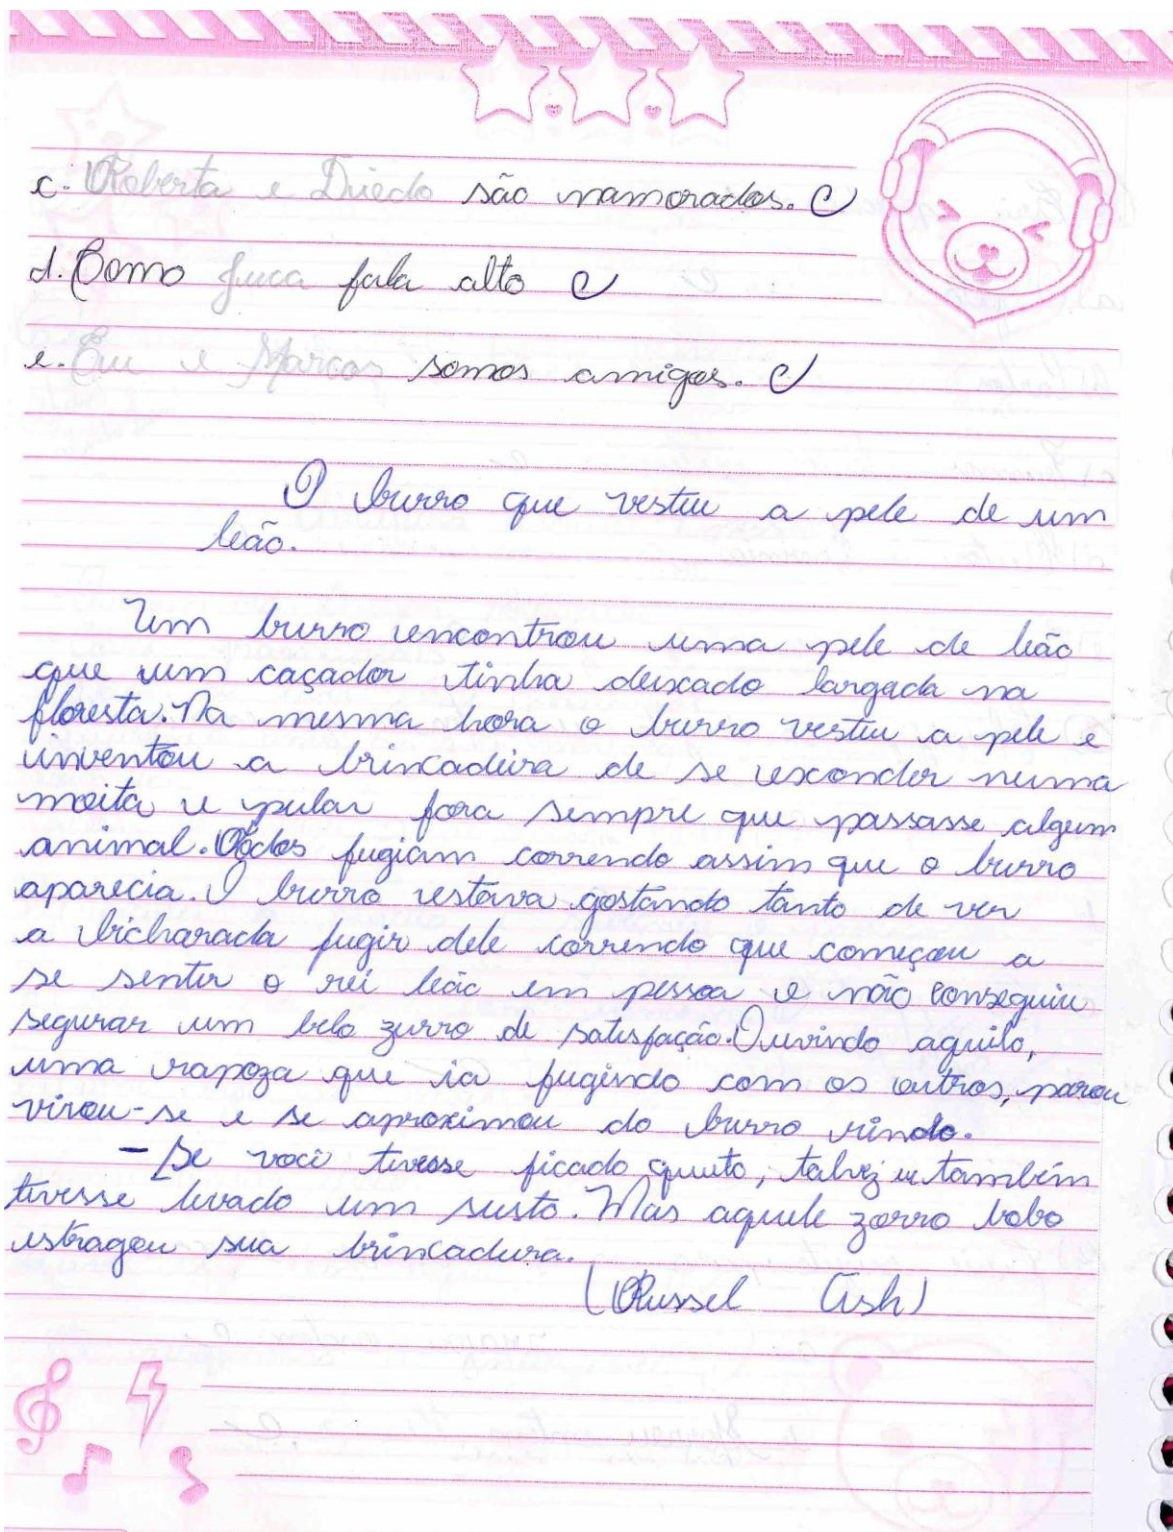 c. Roberta e Diedo são namorados. C
d. Como Juca fala alto C
e. Eu e Marcos somos amigos. C
O burro que vestiu a pele de um
leão.
Um burro encontrou uma pele de leão
que um caçador tinha deixado largada na
floresta. Na mesma hora o burro vestiu a pele e
inventou a brincadeira de se esconder numa
moita e pular fora sempre que passasse algum
animal. Todos fugiam correndo assim que o burro
aparecia. O burro estava gostando tanto de ver
a bicharada fugir dele correndo que começou a
se sentir o rei leão em pessoa e não conseguiu
segurar um belo zurro de satisfação. Ouvindo aquilo,
uma rapoza que ia fugindo com os outros, parou
virou-se e se aproximou do burro rindo.
- Se você tivesse ficado quieto, talvez eu também
tivesse levado um susto. Mas aquele zorro bobo
estragou sua brincadeira.
(Russel Ash)